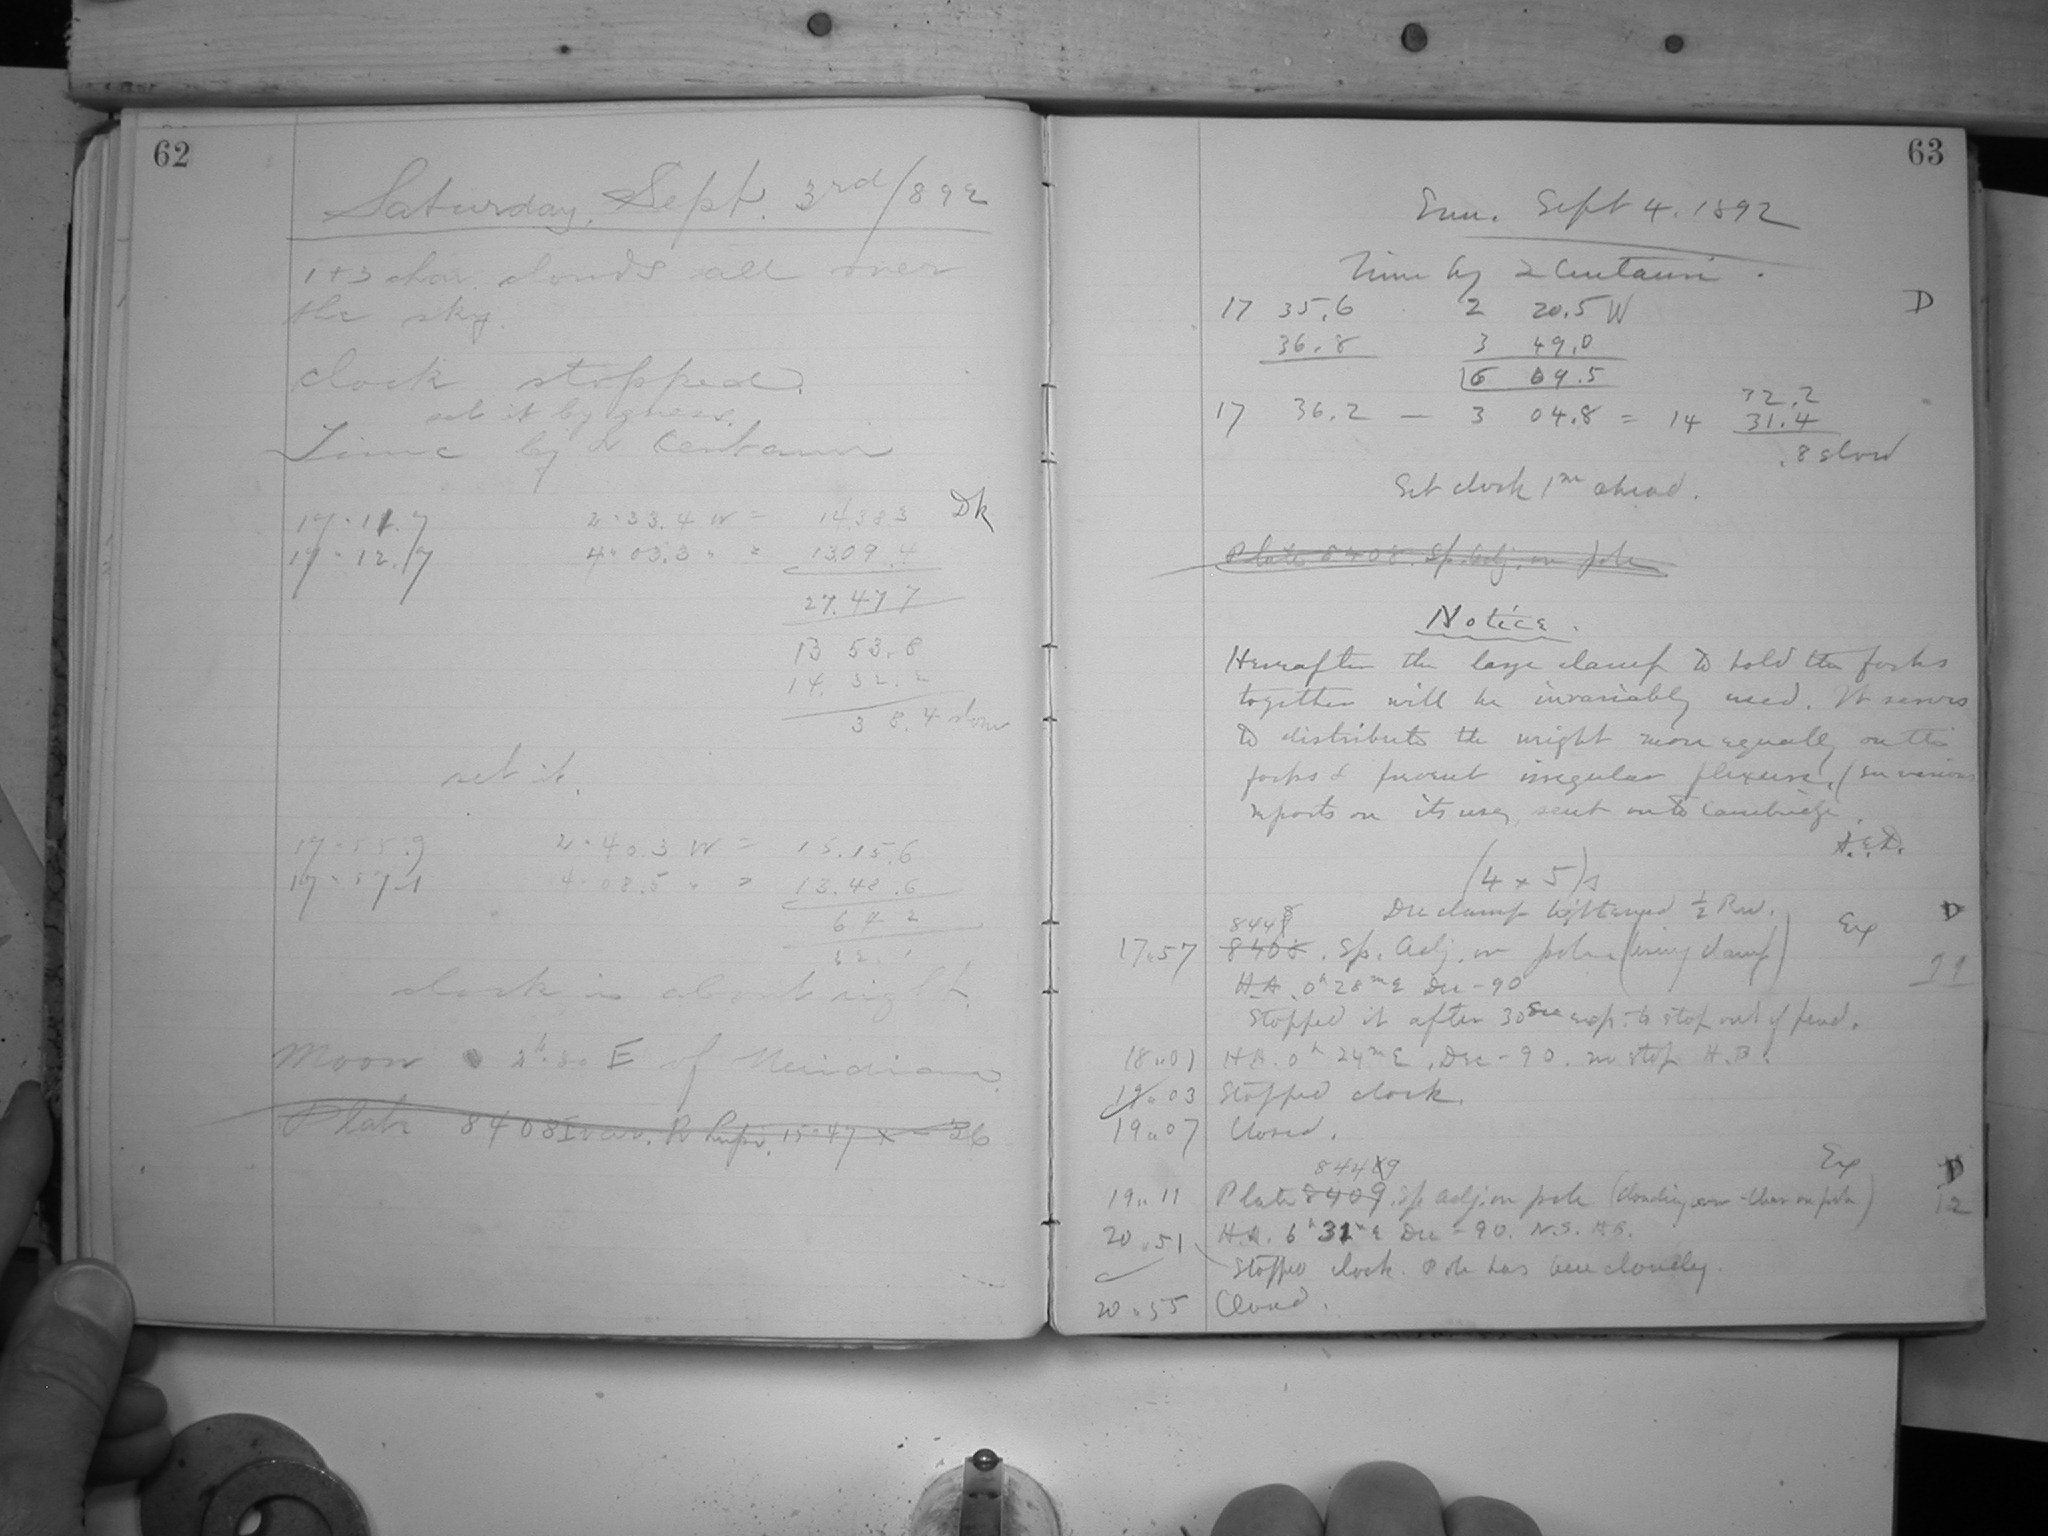 62
Saturday, Sept. 3rd /892
clouds all over
the sky.
Clock stopped.
set it by guess.
Time by α Centauri
17 " 11.7 2 " 33.4 W = 14.38.3 Dk
17 " 12.7 4 " 03.3 " = 13 09.4
27.47 7
13 53.8
14. 32.2
3 8.4 slow
set it.
17 " 55.9 2 " 40.3 W = 15.15.6
17 " 57.1 4 " 08.5 " = 13.48.6
6 4 2
32.1
clock is about right.
Moon E of Meridian.
Plate 8408 R Lupi. 15 " 47 x - 36
63
Sun. Sept 4. 1892
Time by α Centauri.
17 35.6 2 20.5 W D
36.8 3 49.0
6 09.5
32.2
17 36.2 — 3 04.8 = 14 31.4
.8 slow
Set clock 1m ahead.
Plate 8408. Sp. Adj. on pole
Notice.
Hereafter the large clamp to hold the forks
together will be invariably used. It serves
to distribute the weight more equally on the
forks & prevent irregular flexure. (See various
reports on its use, sent on to Cambridge.
A.E.D.
(4 x 5)s
Dec clamp tightened ½ Rev.
8448 Exp D
17 " 57 8408. Sp. Adj. on pole (using clamp)
H.A. 0h 28m E Dec - 90
Stopped it after 30 sec exp. to stop out of pend.
18 " 01 H.A. 0h 24m E, Dec - 90. no stop H.B.
19 " 03 Stopped clock.
19 " 07 Closed.
8449 Exp D
19 " 11 Plate 8409. Sp. Adj. on pole (Clouding over - Clear on pole) 12
20 " 51 H.A. 6h 31m E Dec - 90. N.S. H.B.
Stopped clock. Pole has been cloudy.
20 " 55 Closed.